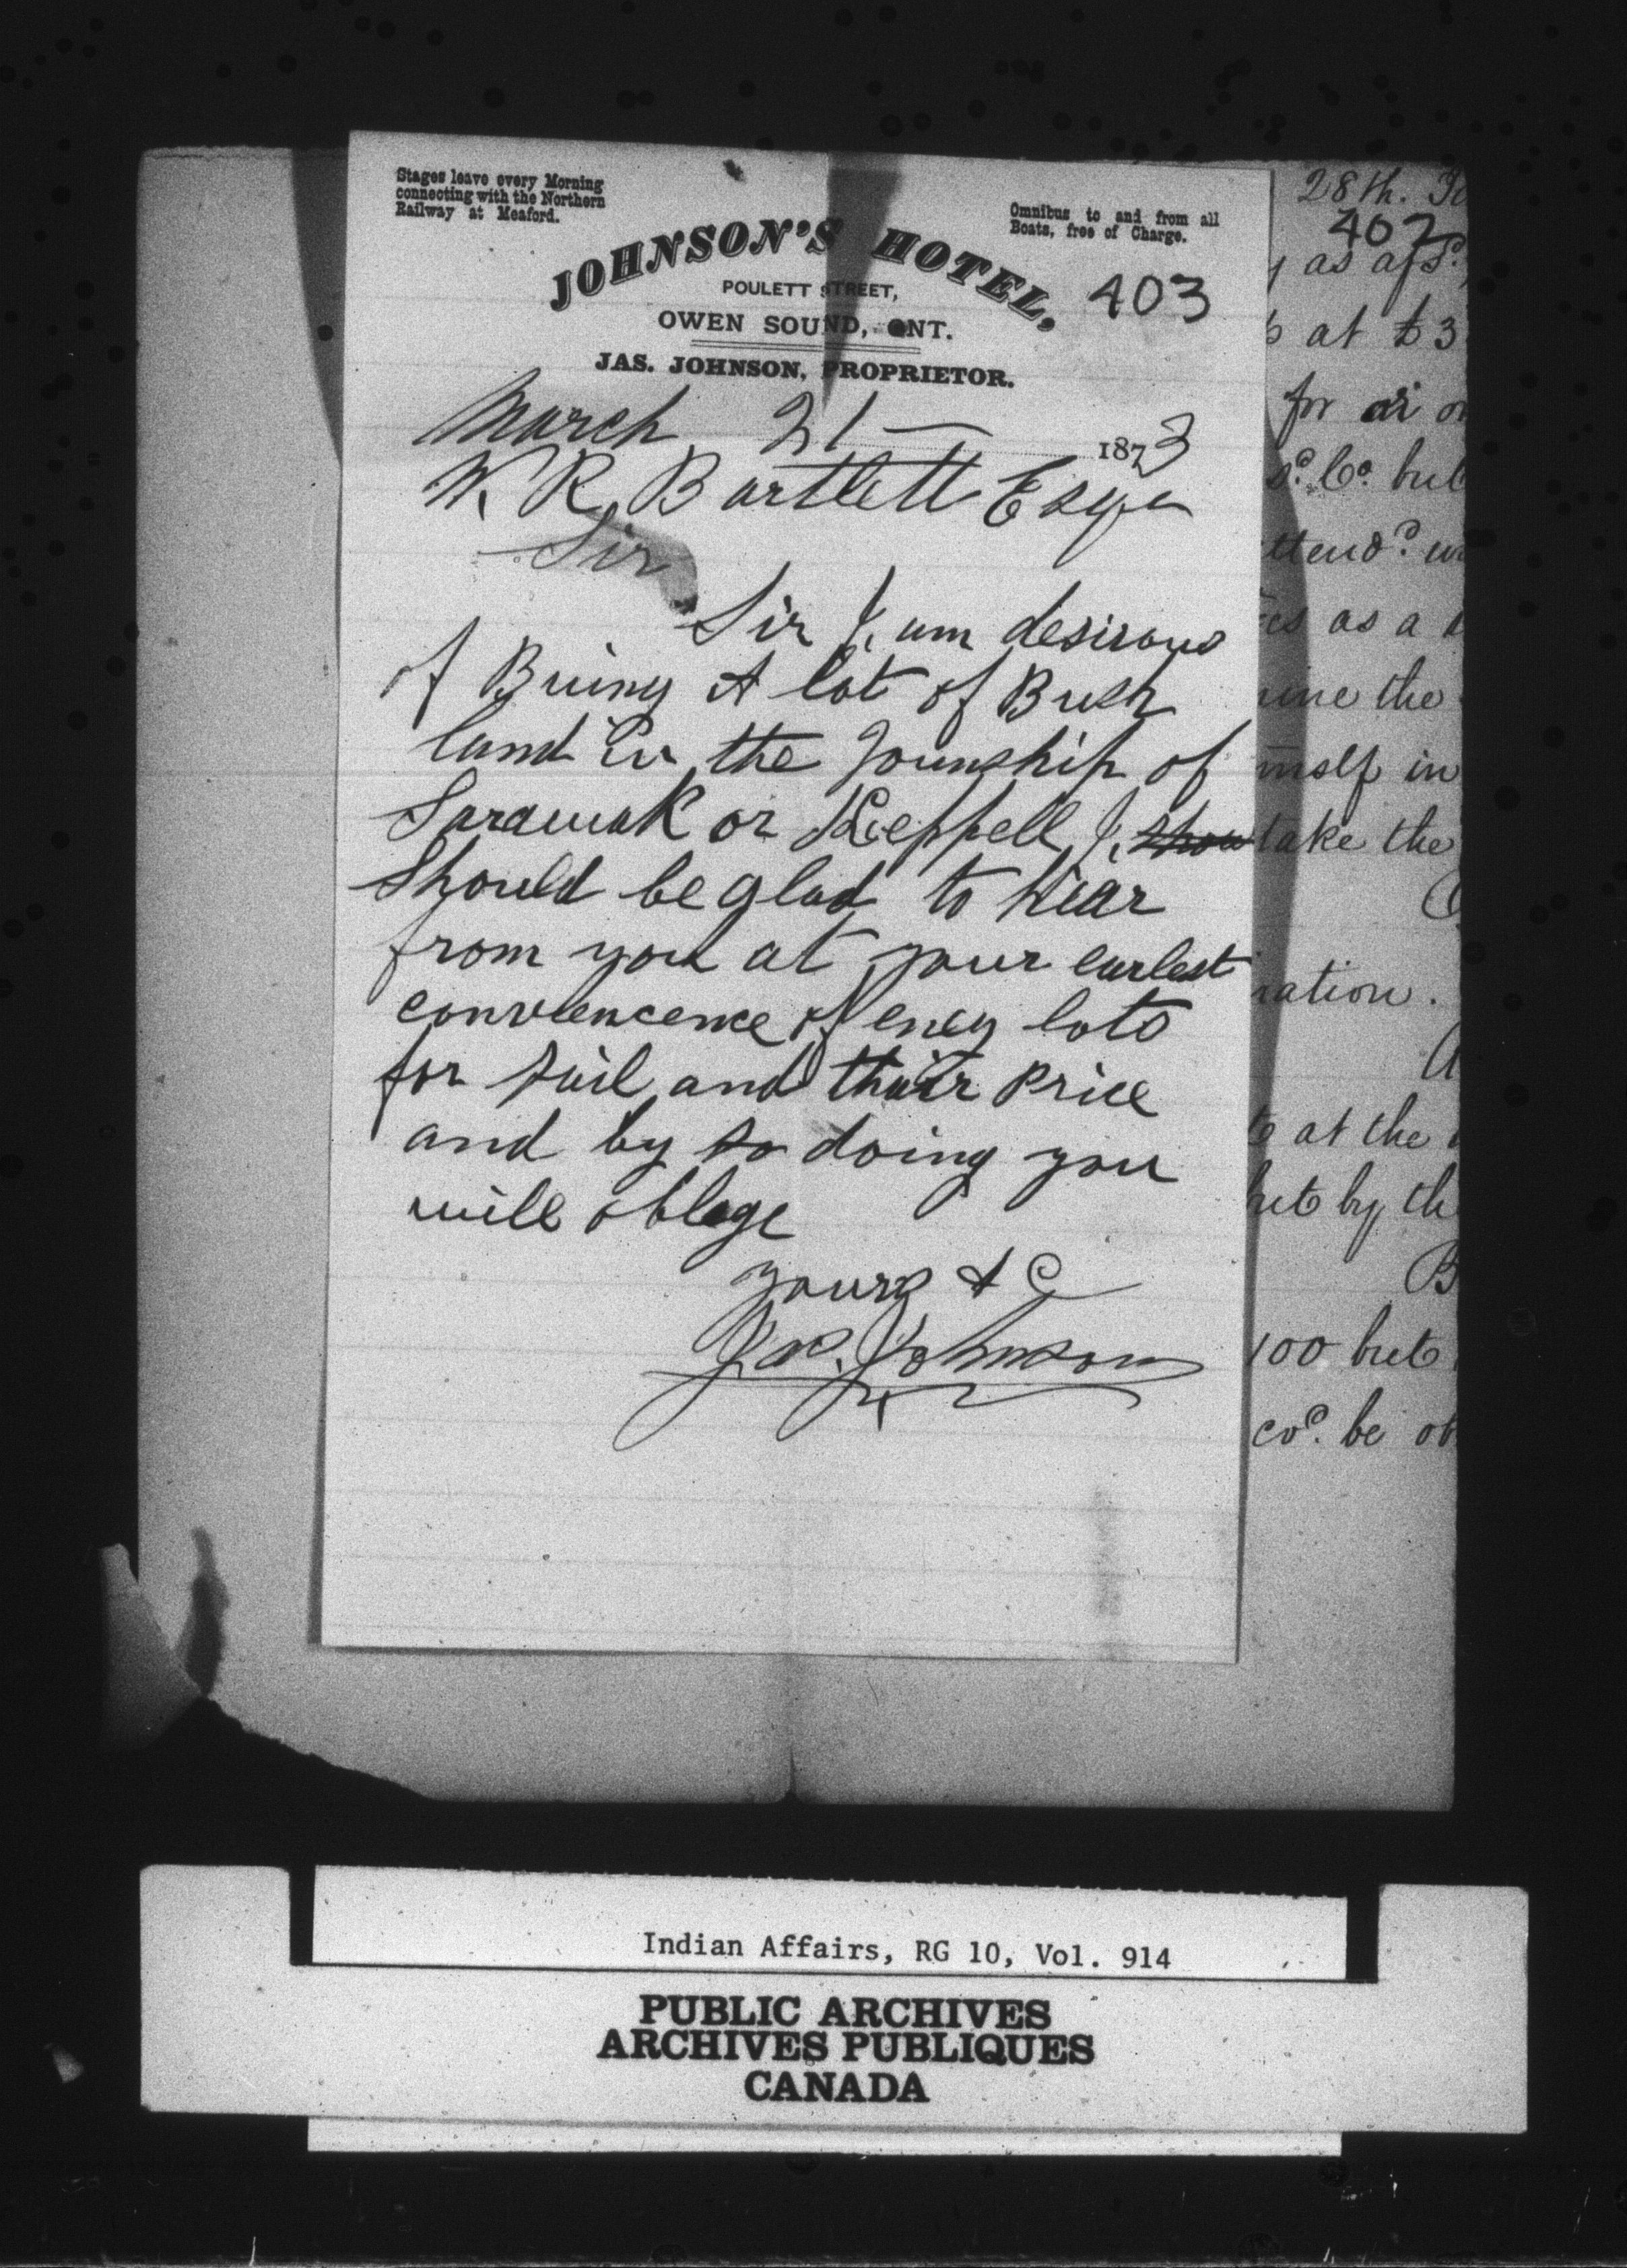 Stages leave every Morning
connecting with the Northern
Railway at Meaford.
Omnibus to and from all
Boats, free of Charge.
JOHNSON'S HOTEL,
403
POULETT STREET,
OWEN SOUND, ONT.
JAS. JOHNSON, PROPRIETOR.
March 21 — 1873
W. R. Bartlett Esqr
Sir
Sir I am desirous
of Buing A lot of Bush
land in the Township of
Sarawak or Keppell I show
Should be glad to hear
from you at your earlest
convience of eney lots
for Sail and their Price
and by so doing you
will oblage
yours & C
Jas. Johnson
28th.
402
as afsd.
at £3
for
Co. but
ttend.
as a
ine the
mself in
take the
ration.
at the
but by th
100 but
cod. be ob
Indian Affairs, RG 10, Vol. 914
PUBLIC ARCHIVES
ARCHIVES PUBLIQUES
CANADA